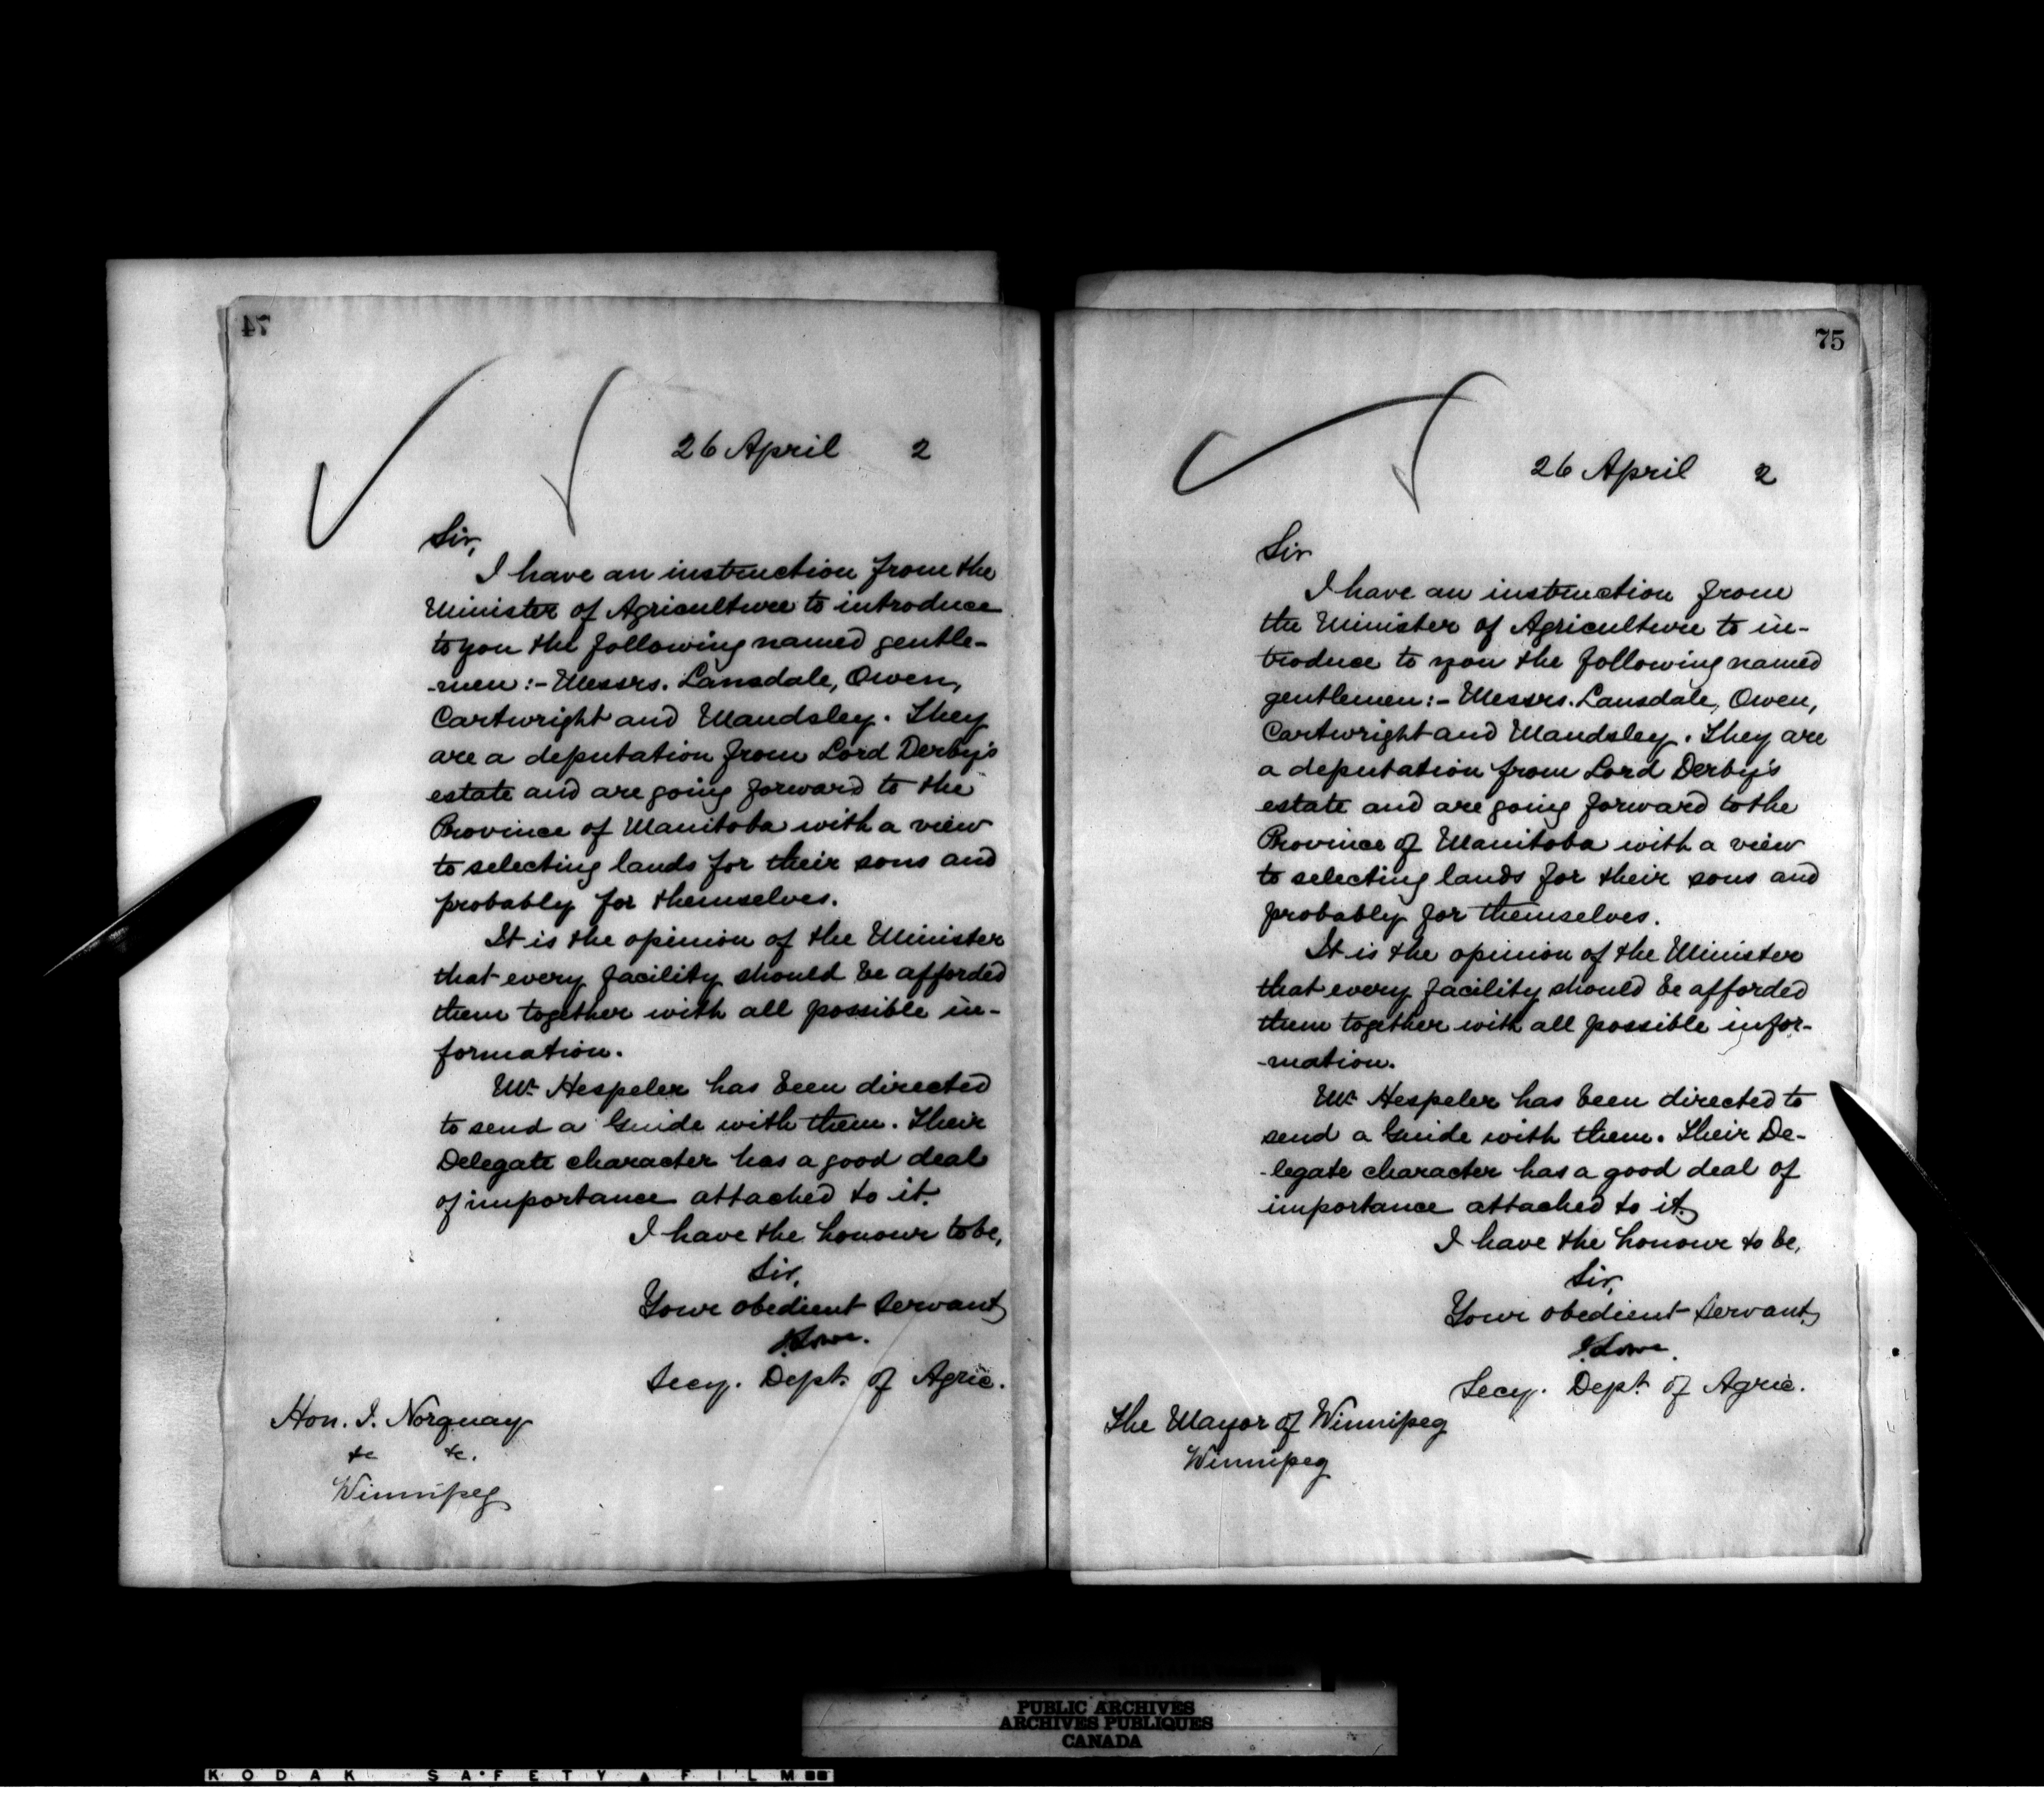 74
26 April 2
Sir,
I have an instruction from the
Minister of Agriculture to introduce
to you the following named gentle-
-men:- Messrs. Lansdale, Owen,
Cartwright and Maudsley. They
are a deputation from Lord Derby's
estate and are going forward to the
Province of Manitoba with a view
to selecting lands for their sons and
probably for themselves.
It is the opinion of the Minister
that every facility should be afforded
them together with all possible in-
formation.
Mr. Hespeler has been directed
to send a Guide with them. Their
Delegate character has a good deal
of importance attached to it.
I have the honour to be,
Sir,
Your obedient servant
J. Lowe.
Secy. Dept. of Agric.
Hon. J. Norquay
&c &c.
Winnipeg
75
26 April 2
Sir
I have an instruction from
the Minister of Agriculture to in-
troduce to you the following named
gentlemen:- Messrs. Lansdale, Owen,
Cartwright and Maudsley. They are
a deputation from Lord Derby's
estate and are going forward to the
Province of Manitoba with a view
to selecting lands for their sons and
probably for themselves.
It is the opinion of the Minister
that every facility should be afforded
them together with all possible infor-
-mation.
Mr. Hespeler has been directed to
send a Guide with them. Their De-
-legate character has a good deal of
importance attached to it.
I have the honour to be,
Sir,
Your obedient servant
J. Lowe.
Secy. Dept. of Agric.
The Mayor of Winnipeg
Winnipeg
PUBLIC ARCHIVES
ARCHIVES PUBLIQUES
CANADA
KODAK SAFETY FILM